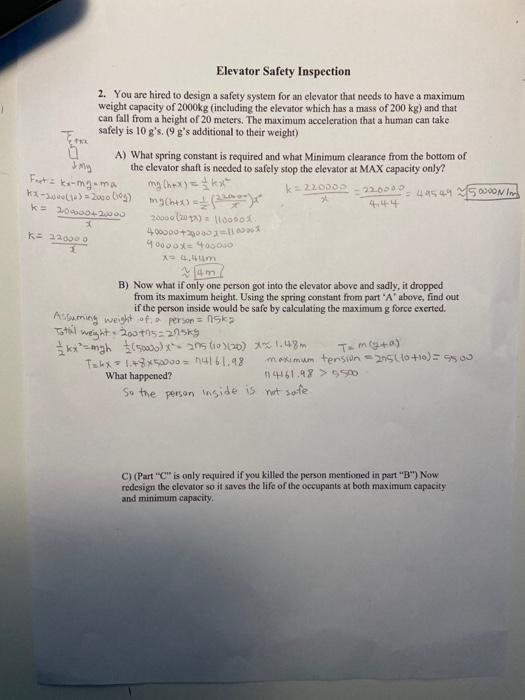 Elevator Safety Inspection
2. You are hired to design a safety system for an elevator that needs to have a maximum
weight capacity of 2000kg (including the elevator which has a mass of 200 kg) and that
can fall from a height of 20 meters. The maximum acceleration that a human can take
safely is 10 g's. (9 g's additional to their weight)
A) What spring constant is required and what Minimum clearance from the bottom of
the elevator shaft is needed to safely stop the elevator at MAX capacity only?
↓mg
Fnet = kx-mg=ma
kx-2000(10)=2000(10g)
k= 200000+20000 / x
k= 220000 / x
mg(h+x)=½kx²
mg(h+x)=½(220000/x)x²
20000(20+x)=110000x
400000+20000x=110000x
90000x=400000
x=4.44m
≈ 4m
k = 220000/x = 220000/4.44 = 49549 ≈ 50000N/m
B) Now what if only one person got into the elevator above and sadly, it dropped
from its maximum height. Using the spring constant from part 'A' above, find out
if the person inside would be safe by calculating the maximum g force exerted.
Assuming weight of a person = 75kg
Total weight = 200+75=275kg
½kx²=mgh ½(50000)x²= 275(10)(20) x≈1.48m T=m(g+a)
T=kx = 1.48×50000 = 74161.98 maximum tension = 275(10+10)= 5500
What happened? 74161.98 > 5500
So the person inside is not safe
C) (Part "C" is only required if you killed the person mentioned in part "B") Now
redesign the elevator so it saves the life of the occupants at both maximum capacity
and minimum capacity.